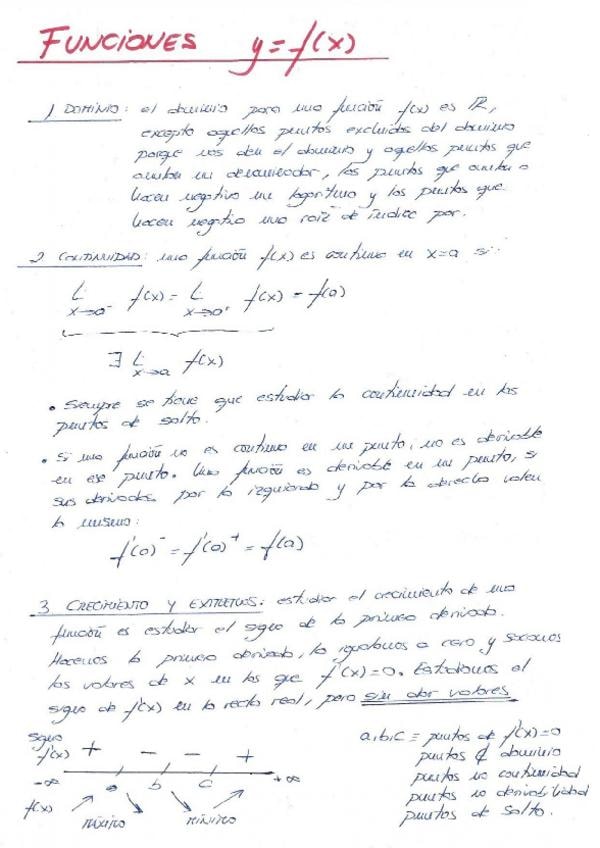 FUNCIONES y = f(x)
1 DOMINIO: el dominio para una función f(x) es ℝ,
excepto aquellos puntos excluidos del dominio
porque nos den el dominio y aquellos puntos que
anulan un denominador, los puntos que anulan o
hacen negativo un logaritmo y los puntos que
hacen negativo una raíz de índice par.
2 CONTINUIDAD: una función f(x) es continua en x=a si:
L f(x) = L f(x) = f(a)
x→a⁻ x→a⁺
∃ L f(x)
x→a
• Siempre se tiene que estudiar la continuidad en los
puntos de salto.
• Si una función no es continua en un punto, no es derivable
en ese punto. Una función es derivable en un punto, si
sus derivadas por la izquierda y por la derecha valen
lo mismo:
f'(a)⁻ = f'(a)⁺ = f(a)
3 CRECIMIENTO Y EXTREMOS: estudiar el crecimiento de una
función es estudiar el signo de la primera derivada.
Hacemos la primera derivada, la igualamos a cero y sacamos
los valores de x en los que f'(x)=0. Estudiamos el
signo de f'(x) en la recta real, pero sin dar valores
signo
f'(x) + - - +
-∞ a b c +∞
f(x) ↗ ↘ ↘ ↗
MÁXIMO MÍNIMO
a,b,c ≡ puntos de f'(x)=0
puntos ∉ dominio
puntos no continuidad
puntos no derivabilidad
puntos de salto.